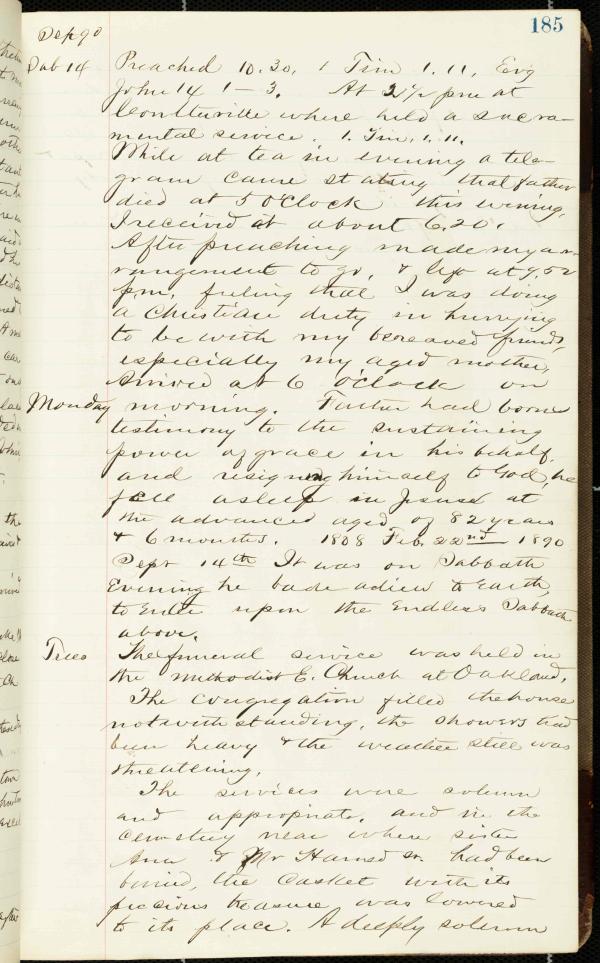 185
Sep 90
Sab 14 Preached 10.30. 1 Tim 1.11. Evg
John 14 1-3. At 2½ pm at
where held a sacra-
mental service. 1. Tim. 1.11.
While at tea in evening a tele-
gram came stating that father
died at 5 O'Clock this evening,
I received at about 6.20.
After preaching made my ar-
rangement to go, & left at 9.52
p.m. feeling that I was doing
a Christian duty in hurrying
to be with my bereaved friends,
especially my aged mother,
Arrived at 6 O'Clock on
Monday morning. Father had borne
testimony to the sustaining
power of grace in his behalf,
and resigning himself to God, he
fell asleep in Jesus at
the advanced aged of 82 years
& 6 months. 1808 Feb. 22nd 1890
Sept 14th It was on Sabbath
Evening he bade adieu to Earth,
to Enter upon the Endless Sabbath
above.
Tues The funeral service was held in
the Methodist E. Church at Oakland.
The congregation filled the house
notwithstanding, the showers had
been heavy & the weather still was
threatening.
The services were solemn
and appropriate, and in the
cemetery near where sister
Ann & Mr Harned sr. had been
buried, the Casket with its
precious treasure was lowered
to its place. A deeply solemn